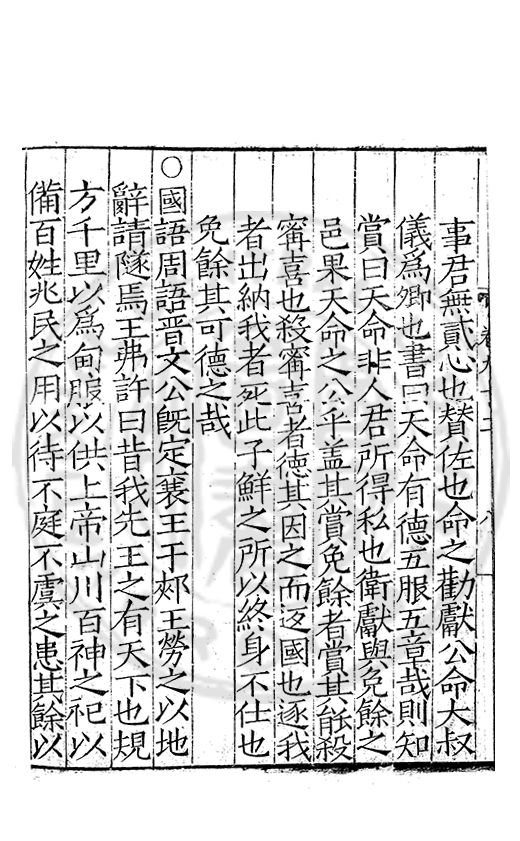 事君無貳心也賛佐也命之勸獻公命大叔
儀爲卿也書曰天命有德五服五章哉則知
賞曰天命非人君所得私也衛獻與免餘之
邑果天命之公乎盖其賞免餘者賞其能殺
甯喜也殺甯喜者德其因之而返國也逐我
者出納我者死此子鮮之所以終身不仕也
免餘其可德之哉
○國語周語晋文公旣定襄王于郟王勞之以地
辭請隧焉王弗許曰昔我先王之有天下也規
方千里以爲甸服以供上帝山川百神之祀以
備百姓兆民之用以待不庭不虞之患其餘以